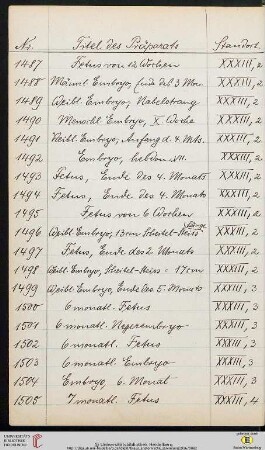 Nr. Titel des Präparats Standort
1487 Fetus von 12 Wochen XXXIII, 2
1488 Männl. Embryo, Ende des 3 Mon. XXXIII, 2
1489 Weibl. Embryo, Nabelstrang XXXIII, 2
1490 Menschl. Embryo, X. Woche XXXIII, 2
1491 Weibl. Embryo, Anfang d. 4. Mts. XXXIII, 2
1492 Embryo, hebdom. VII. XXXIII, 2
1493 Fetus, Ende des 4. Monats XXXIII, 2
1494 Fetus, Ende des 4. Monats XXXIII, 2
1495 Fetus von 6 Wochen XXXIII, 2
1496 Weibl. Embryo, 13 cm Scheitel-Steiss Länge XXXIII, 2
1497 Fetus, Ende des 2 Monats XXXIII, 2
1498 Weibl. Embryo, Scheitel-Steiss = 17 cm XXXIII, 2
1499 Weibl. Embryo, Ende des 5. Monats XXXIII, 3
1500 6 monatl. Fetus XXXIII, 3
1501 6 monatl. Negerembryo XXXIII, 3
1502 6 monatl. Fetus XXXIII, 3
1503 6 monatl. Embryo XXXIII, 3
1504 Embryo, 6. Monat XXXIII, 3
1505 7 monatl. Fetus XXXIII, 4
UNIVERSITÄTS-
BIBLIOTHEK
HEIDELBERG
© Universitätsbibliothek Heidelberg